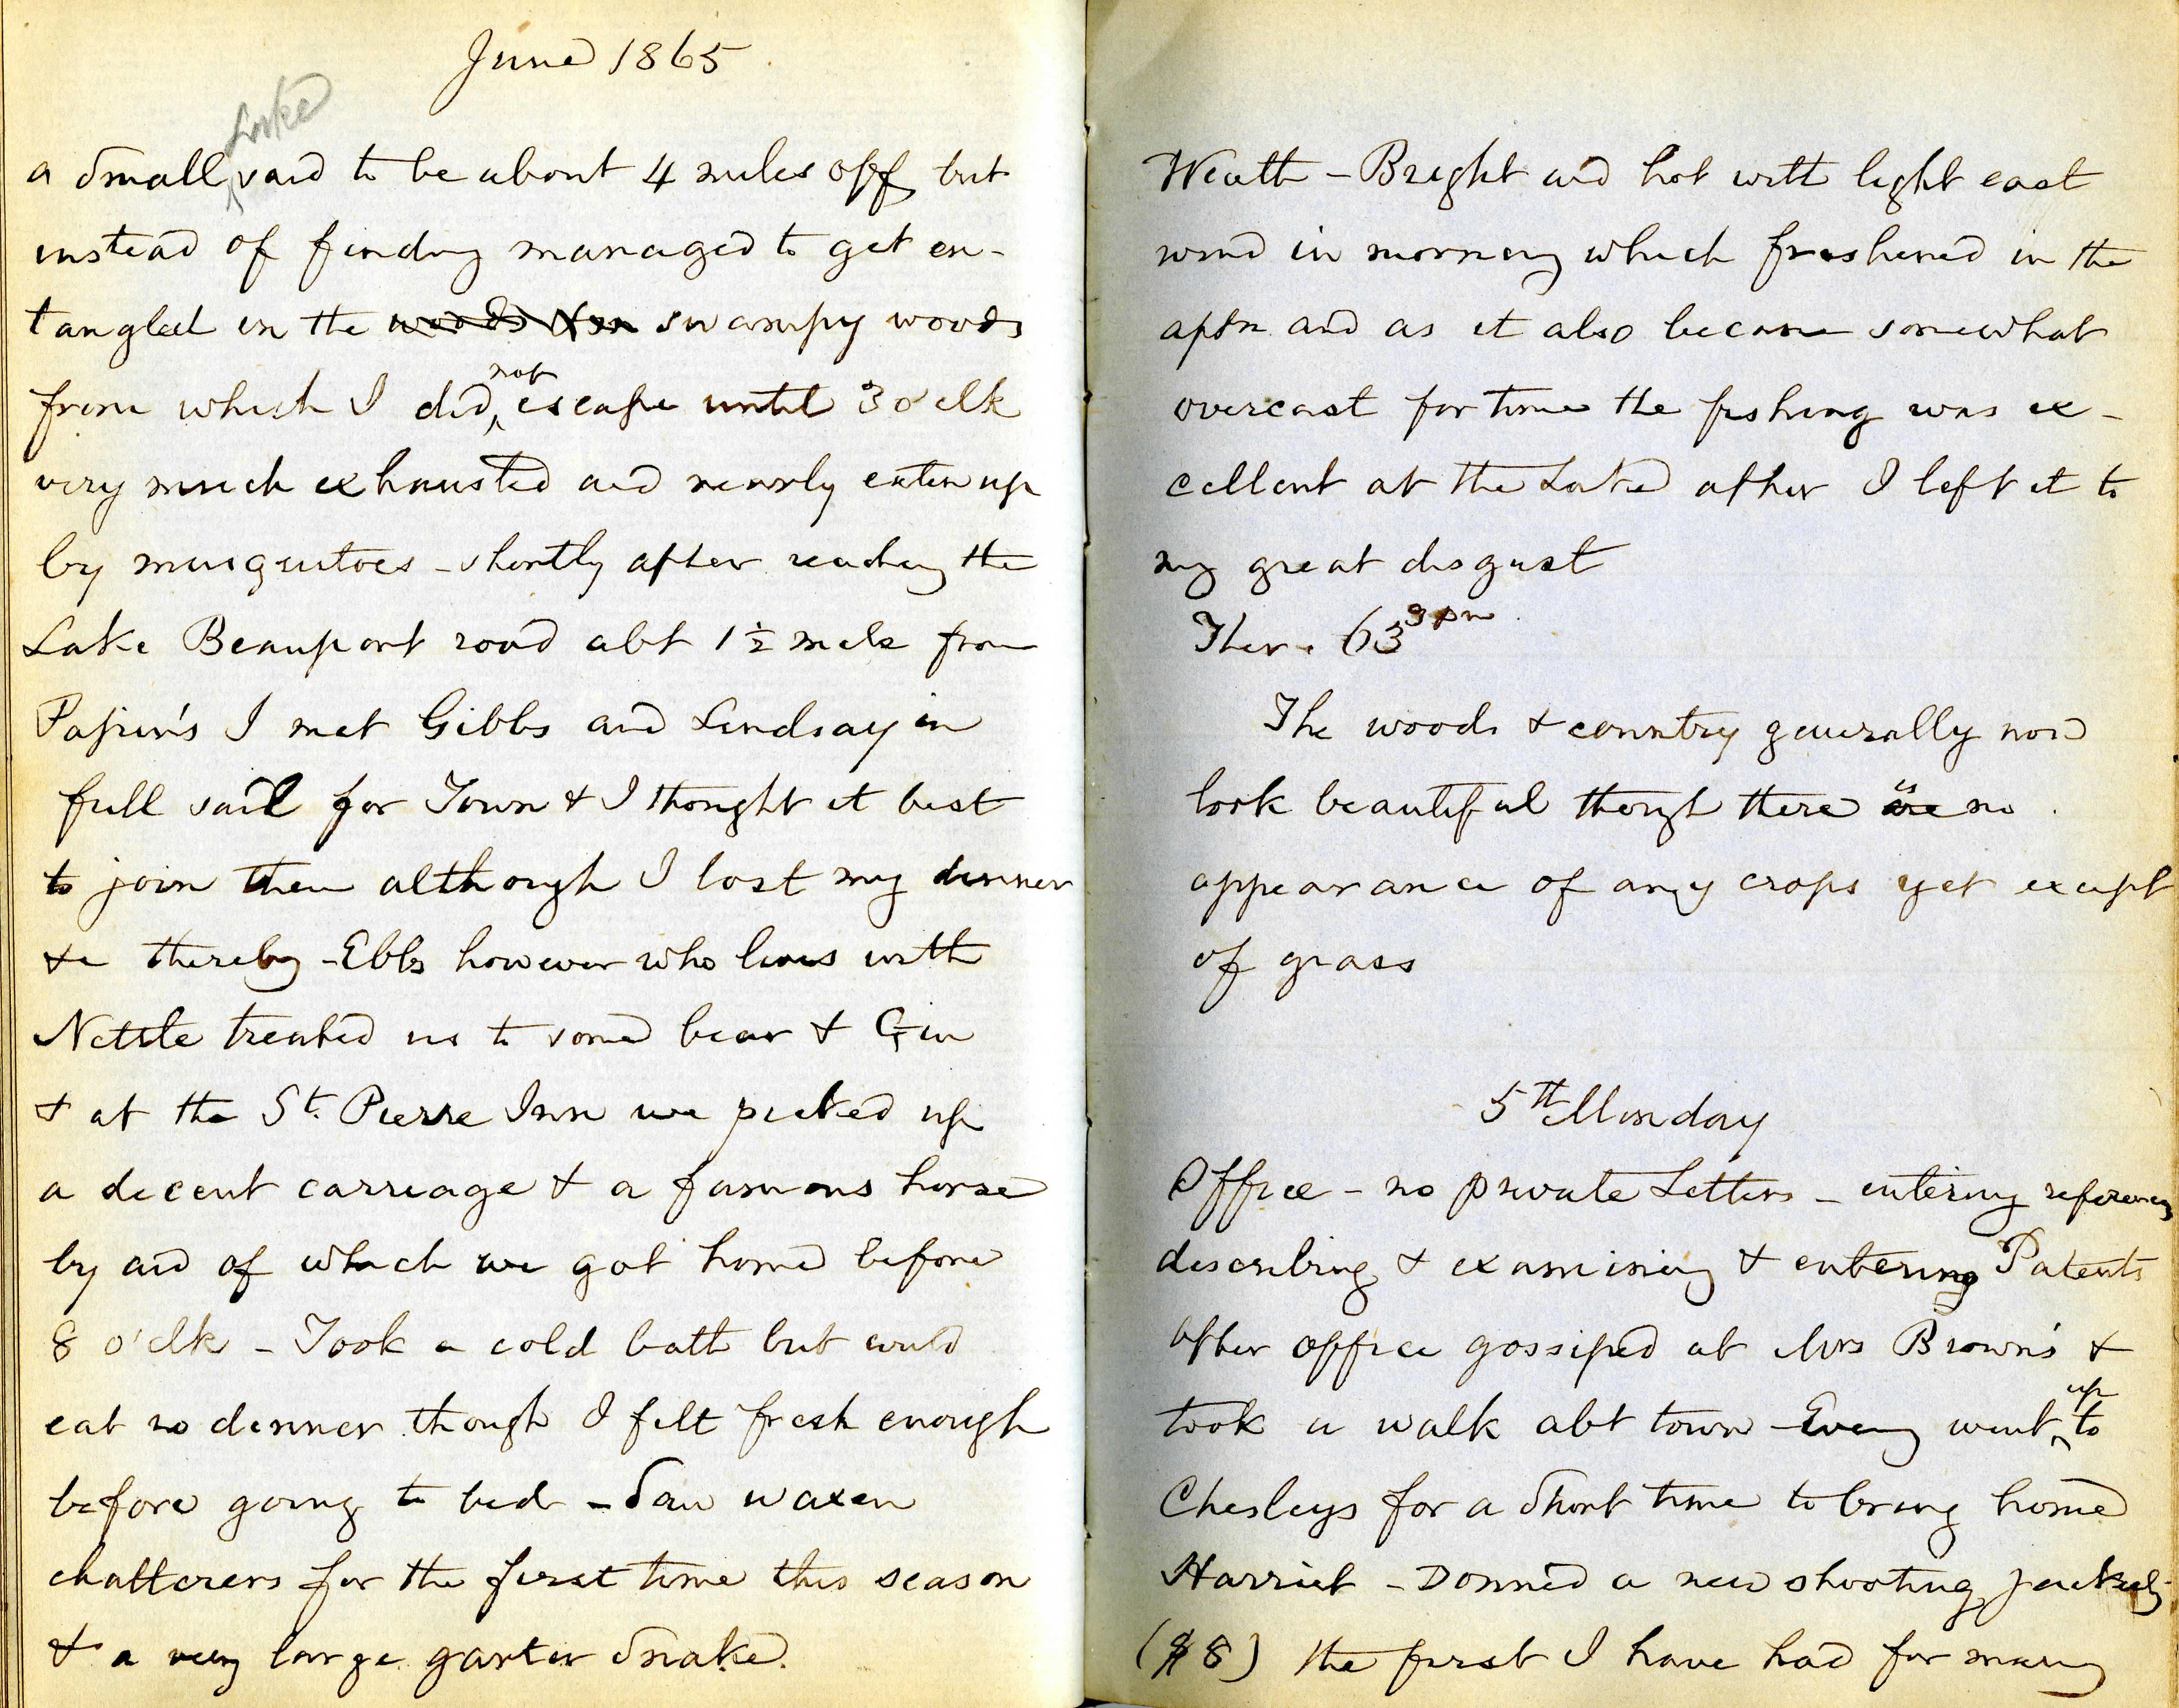 June 1865
Lake
a small said to be about 4 miles off but
instead of finding managed to get en-
tangled in the swampy woods
from which I did not escape until 3 o'clk
very much exhausted and nearly eaten up
by musquitoes - shortly after reaching the
Lake Beauport road abt 1½ mile from
Papin's I met Gibbs and Lindsay in
full sail for Town & I thought it best
to join them although I lost my dinner
&c thereby - Ebbs however who lives with
Nettle treated us to some bear & Gin
& at the St. Pierre Inn we picked up
a decent carriage & a famous horse
by aid of which we got home before
8 o'clk - Took a cold bath but could
eat no dinner though I felt fresh enough
before going to bed - Saw waxen
chatterers for the first time this season
& a very large garter snake.
Weath - Bright and hot with light east
wind in morning which freshened in the
aftn and as it also became somewhat
overcast for time the fishing was ex-
cellent at the Lake after I left it to
my great disgust
Ther. 63 9 pm
The woods & country generally now
look beautiful though there is no
appearance of any crops yet except
of grass
5th Monday
Office - no private Letters - entering references
describing & examining & entering Patents
After office gossiped at Mrs Brown's &
took a walk abt town - Eveng went up to
Chesleys for a short time to bring home
Harriet - Donned a new shooting jacket
($8) the first I have had for many